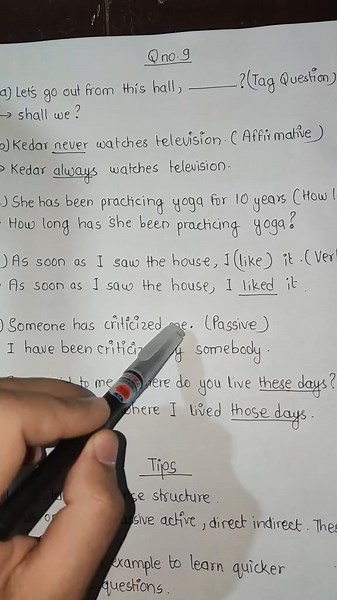 Qno.9
a) Let's go out from this hall, ______?(Tag Question)
→ shall we?
b) Kedar never watches television. (Affirmative)
→ Kedar always watches television.
.) She has been practicing yoga for 10 years (How l
How long has she been practicing yoga?
) As soon as I saw the house, I (like) it. (Ver
As soon as I saw the house, I liked it.
) Someone has criticized me. (Passive)
I have been somebody.
to me do you live these days?
where I lived those days.
Tips
structure.
active, direct indirect. Thes
example to learn quicker
questions.